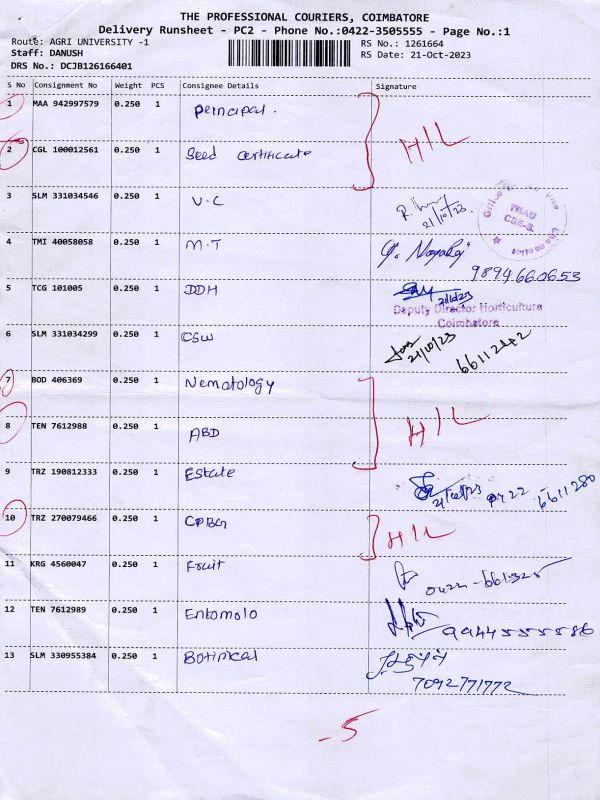 THE PROFESSIONAL COURIERS, COIMBATORE
Delivery Runsheet - PC2 - Phone No.:0422-3505555 - Page No.:1
Route: AGRI UNIVERSITY -1 RS No.: 1261664
Staff: DANUSH RS Date: 21-Oct-2023
DRS No.: DCJB126166401
S No Consignment No Weight PCS Consignee Details Signature
1 MAA 942997579 0.250 1 Principal.
H/L
2 CGL 100012561 0.250 1 Seed certificate
3 SLM 331034546 0.250 1 V.C 21/10/23
TNAU
CBE-3.
4 TMI 40058058 0.250 1 M.T
9894660653
5 TCG 101005 0.250 1 DDH 21/10/23
Deputy Director Horticulture
Coimbatore
6 SLM 331034299 0.250 1 CSW 21/10/23 6611242
7 BOD 406369 0.250 1 Nematology
H/L
8 TEN 7612988 0.250 1 ABD
9 TRZ 190812333 0.250 1 Estate 21/10/23 0422 6611280
10 TRZ 270079466 0.250 1 CPBG H/L
11 KRG 4560047 0.250 1 Fruit
12 TEN 7612989 0.250 1 Entomolo 9944555586
13 SLM 330955384 0.250 1 Botinical
7092771772
-5